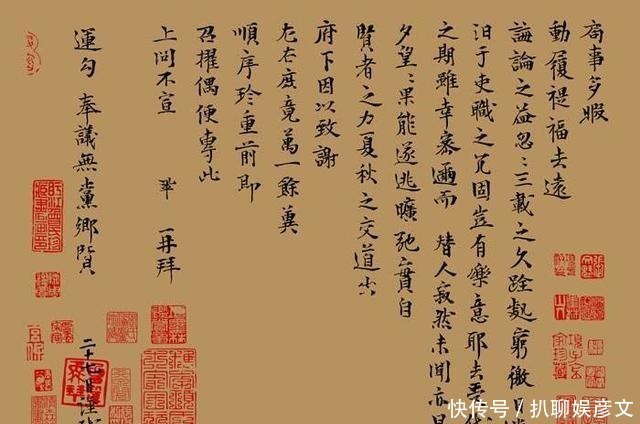 局事多暇
動履禔福去遠
誨論之益忽〻三載之久跧處窮徼日
汩于吏職之冗固豈有樂意耶去受
之期雖幸密邇而 替人寂然未聞亦旦
夕望〻果能遂逃曠弛實自
賢者之力夏秋之交道出
府下因以致謝
左右庶竟萬一餘冀
順序珍重前即
召擢偶便專此
上問不宣 鞏 再拜
運勾奉議無黨鄉賢
二十七日謹
快传号/扒聊娱彦文